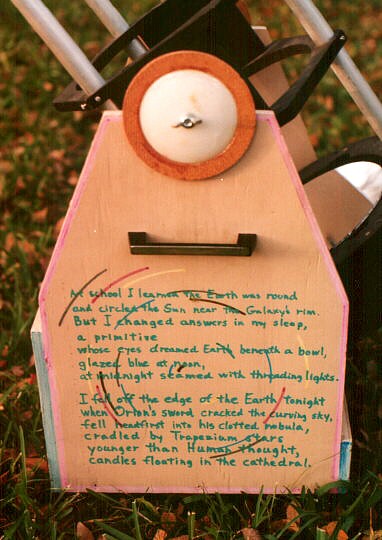 At school I learned the Earth was round
and circled the Sun near the Galaxy's rim.
But I changed answers in my sleep,
a primitive
whose eyes dreamed Earth beneath a bowl,
glazed blue at noon,
at midnight seamed with threading lights.
I fell off the edge of the Earth tonight
when Orion's sword cracked the curving sky,
fell headfirst into his clotted nebula,
cradled by Trapezium stars
younger than Human thought,
candles floating in the cathedral.